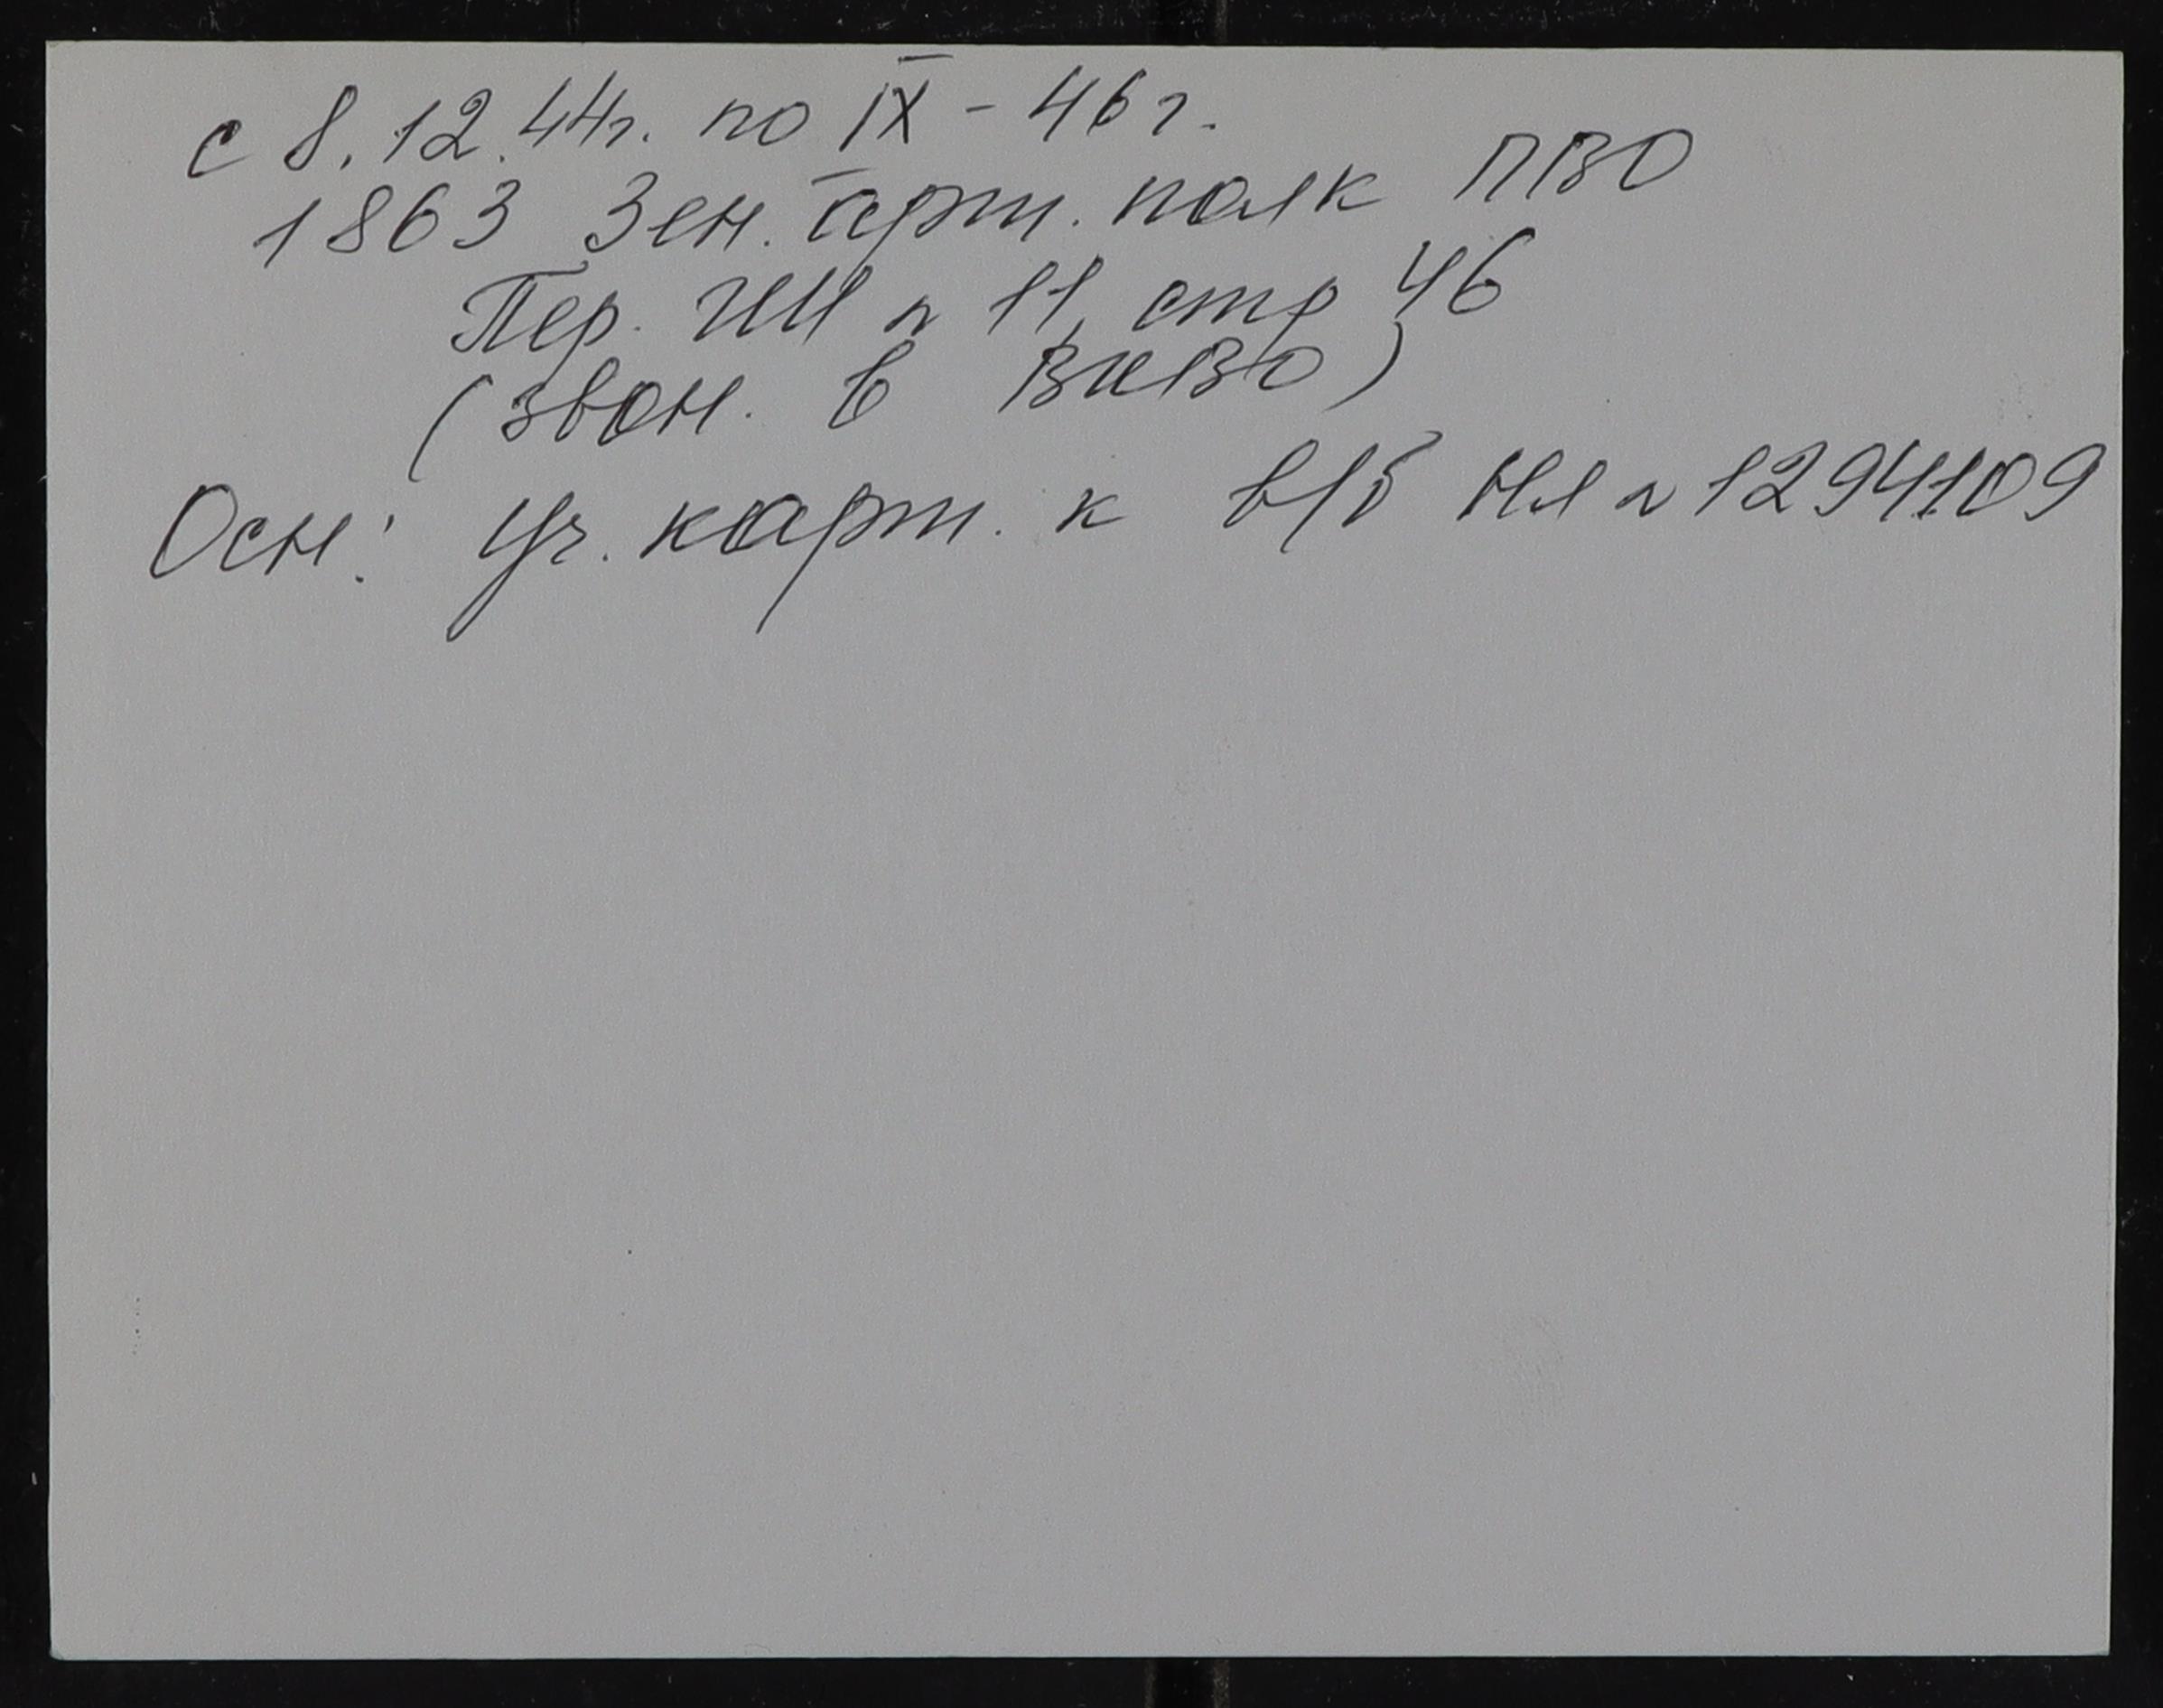 с 8.12.44г. по IX - 46 г.
1863 Зен. арт. полк ПВО
Пер. ГШ № 11, стр 46
(звон. в ВиВО)
Осн: Уч. карт. к в/б НЛ № 1294109